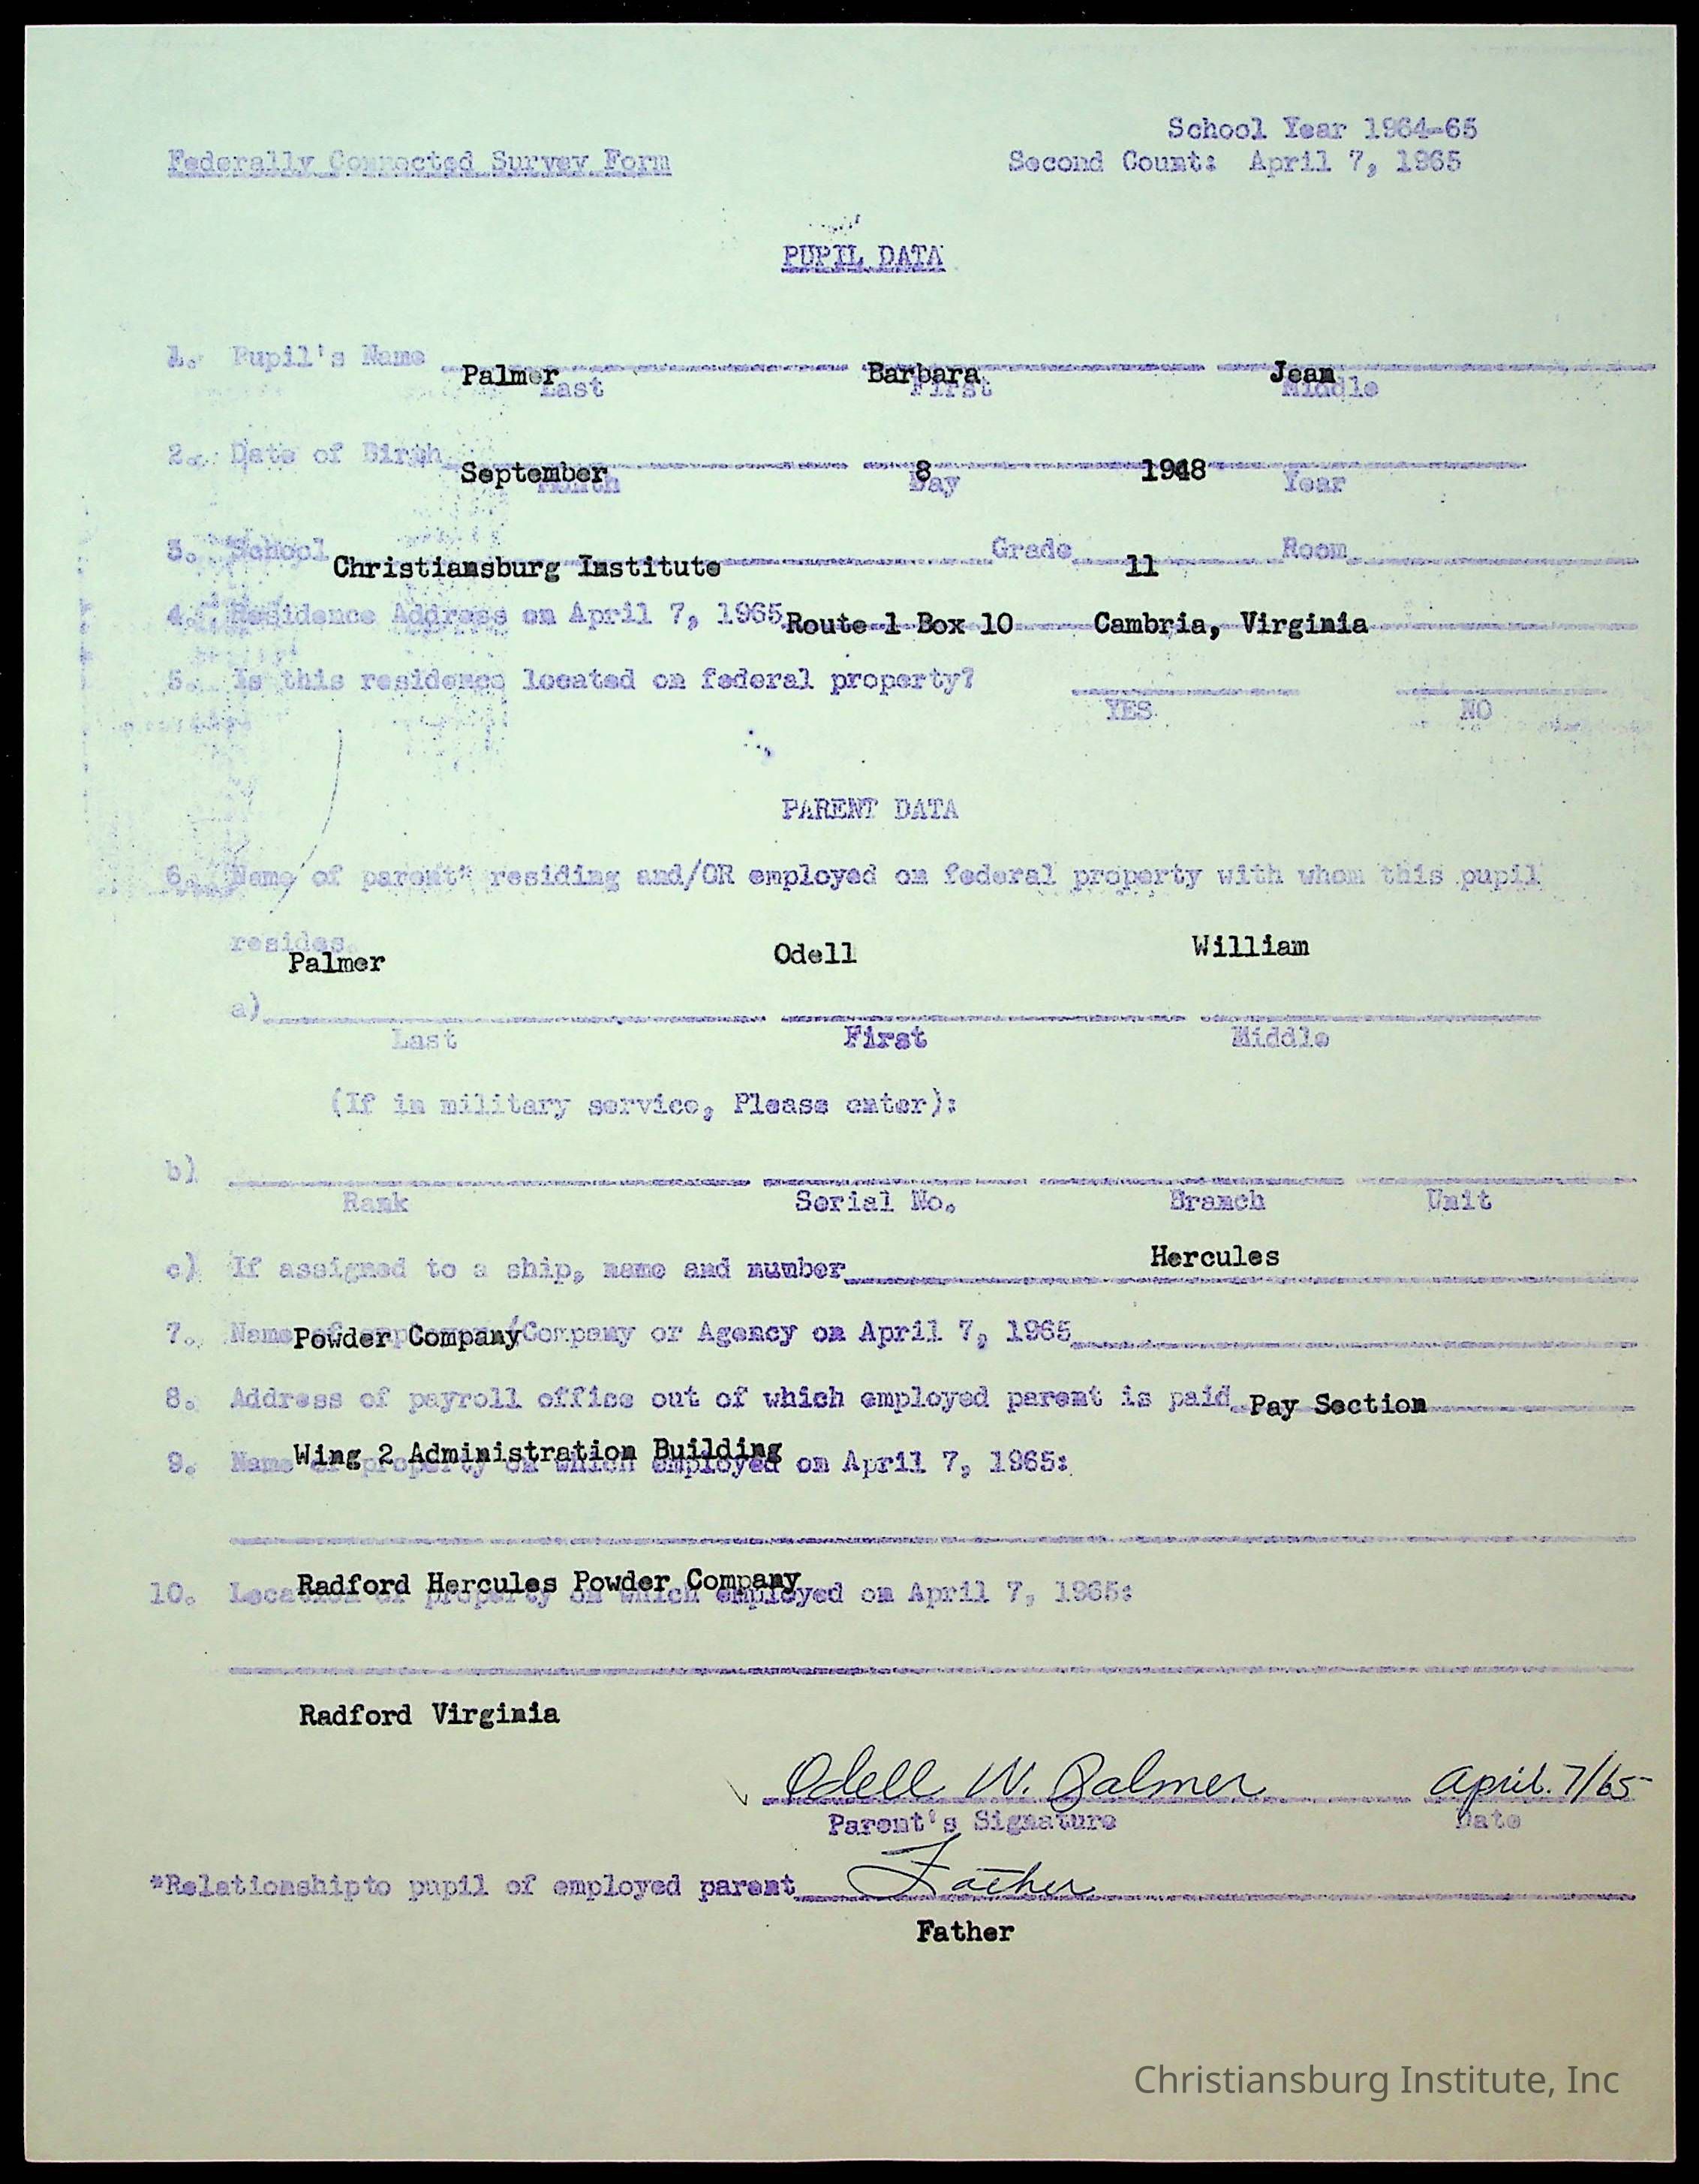 School Year 1964-65
Federally Connected Survey Form
Second Count: April 7, 1965
PUPIL DATA
1. Pupil's Name Palmer Barbara Jean
Last First Middle
2. Date of Birth September 8 1948
Month Day Year
3. School Christiansburg Institute Grade 11 Room
4. Residence Address on April 7, 1965 Route 1 Box 10 Cambria, Virginia
5. Is this residence located on federal property?
YES NO
PARENT DATA
6. Name of parent* residing and/OR employed on federal property with whom this pupil
resides.
Palmer Odell William
a)
Last First Middle
(If in military service, Please enter):
b)
Rank Serial No. Branch Unit
c) If assigned to a ship, name and number Hercules
7. Name Powder Company Company or Agency on April 7, 1965
8. Address of payroll office out of which employed parent is paid Pay Section
Wing 2 Administration Building
9. Name of property on which employed on April 7, 1965:
Radford Hercules Powder Company
10. Location of property on which employed on April 7, 1965:
Radford Virginia
Odell W. Palmer April. 7/65
Parent's Signature Date
*Relationshipto pupil of employed parent Father
Father
Christiansburg Institute, Inc